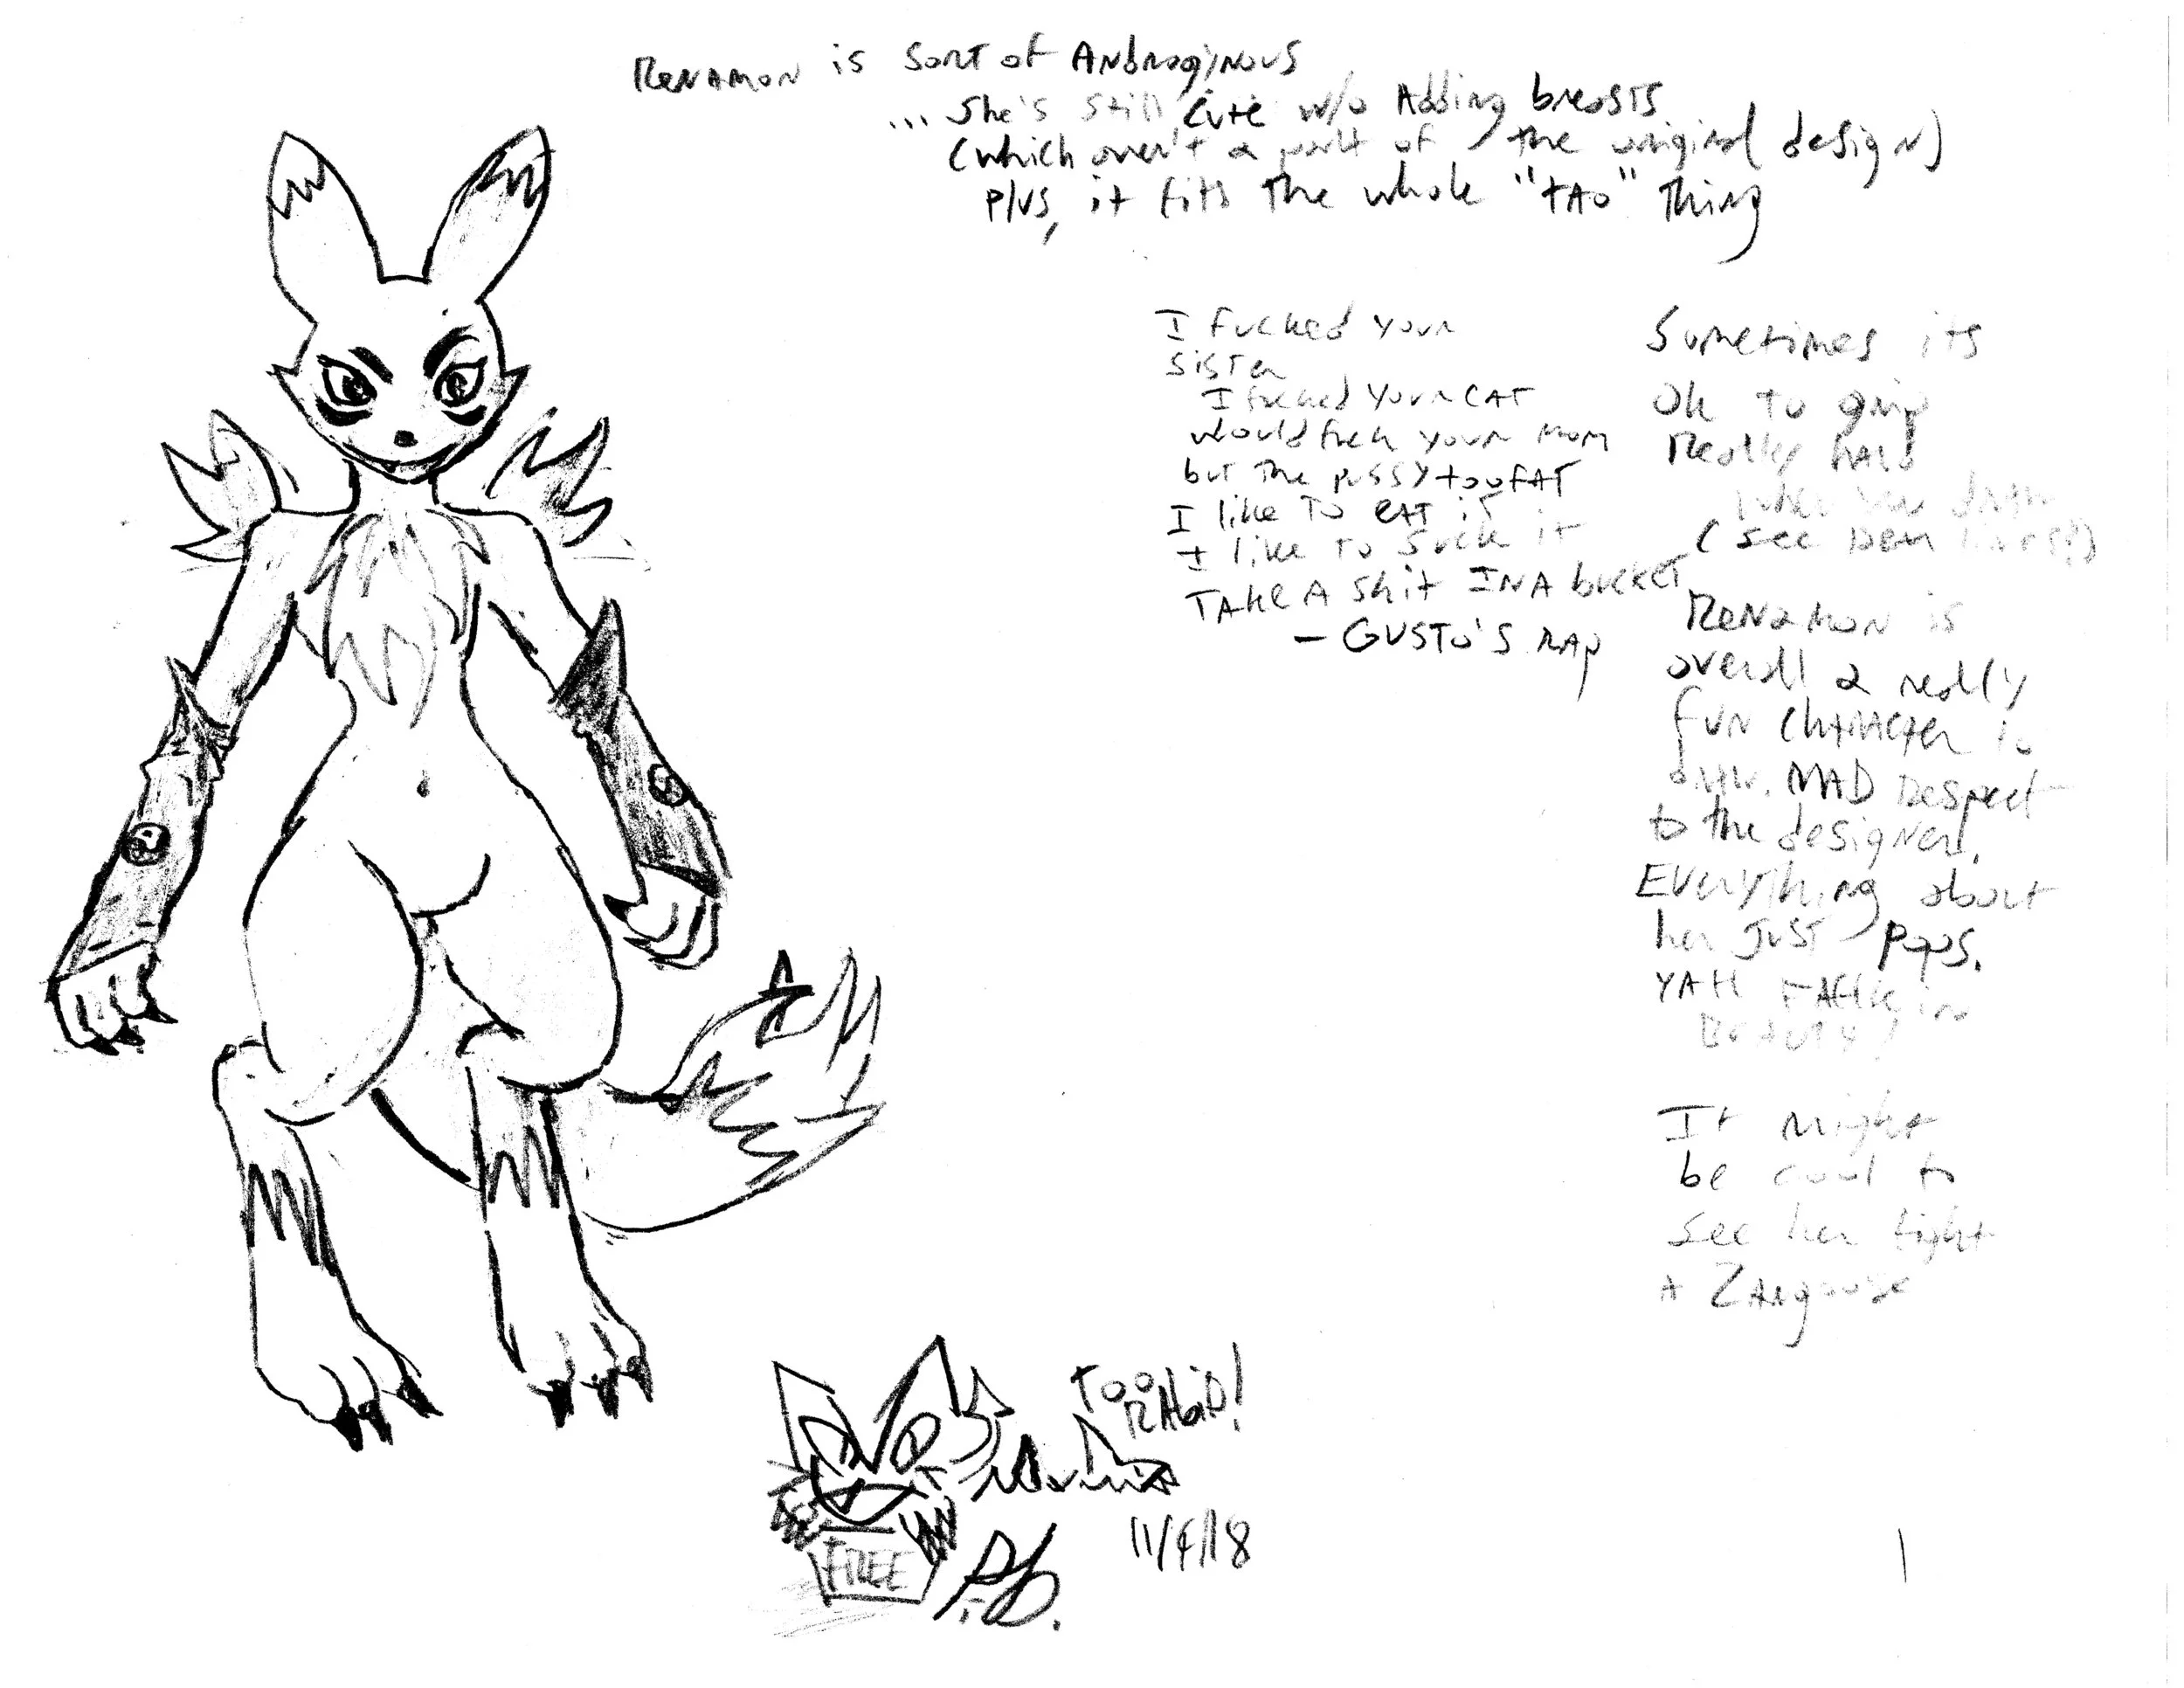 RENAMON is SORT of ANDROGYNOUS
... She's still cute w/o Adding breasts
(which aren't a part of the original design)
Plus, it fits the whole "TAO" Thing
I fucked your
sister
I fucked your CAT
would fuck your mom
but the pussy too fAT
I like To EAT it
I like to suck it
TAKE A Shit IN A bucket
- GUSTO'S RAP
Sometimes its
Ok to grip
Really hard
(see DEM lines?)
RENAMON is
overall a really
fun CHARACTER to
draw. MAD Respect
to the designer.
Everything about
her JUST pops.
YAH
It might
be cool to
see her fight
A Zangoose
TOO
RAbiD!
11/4/18
FREE